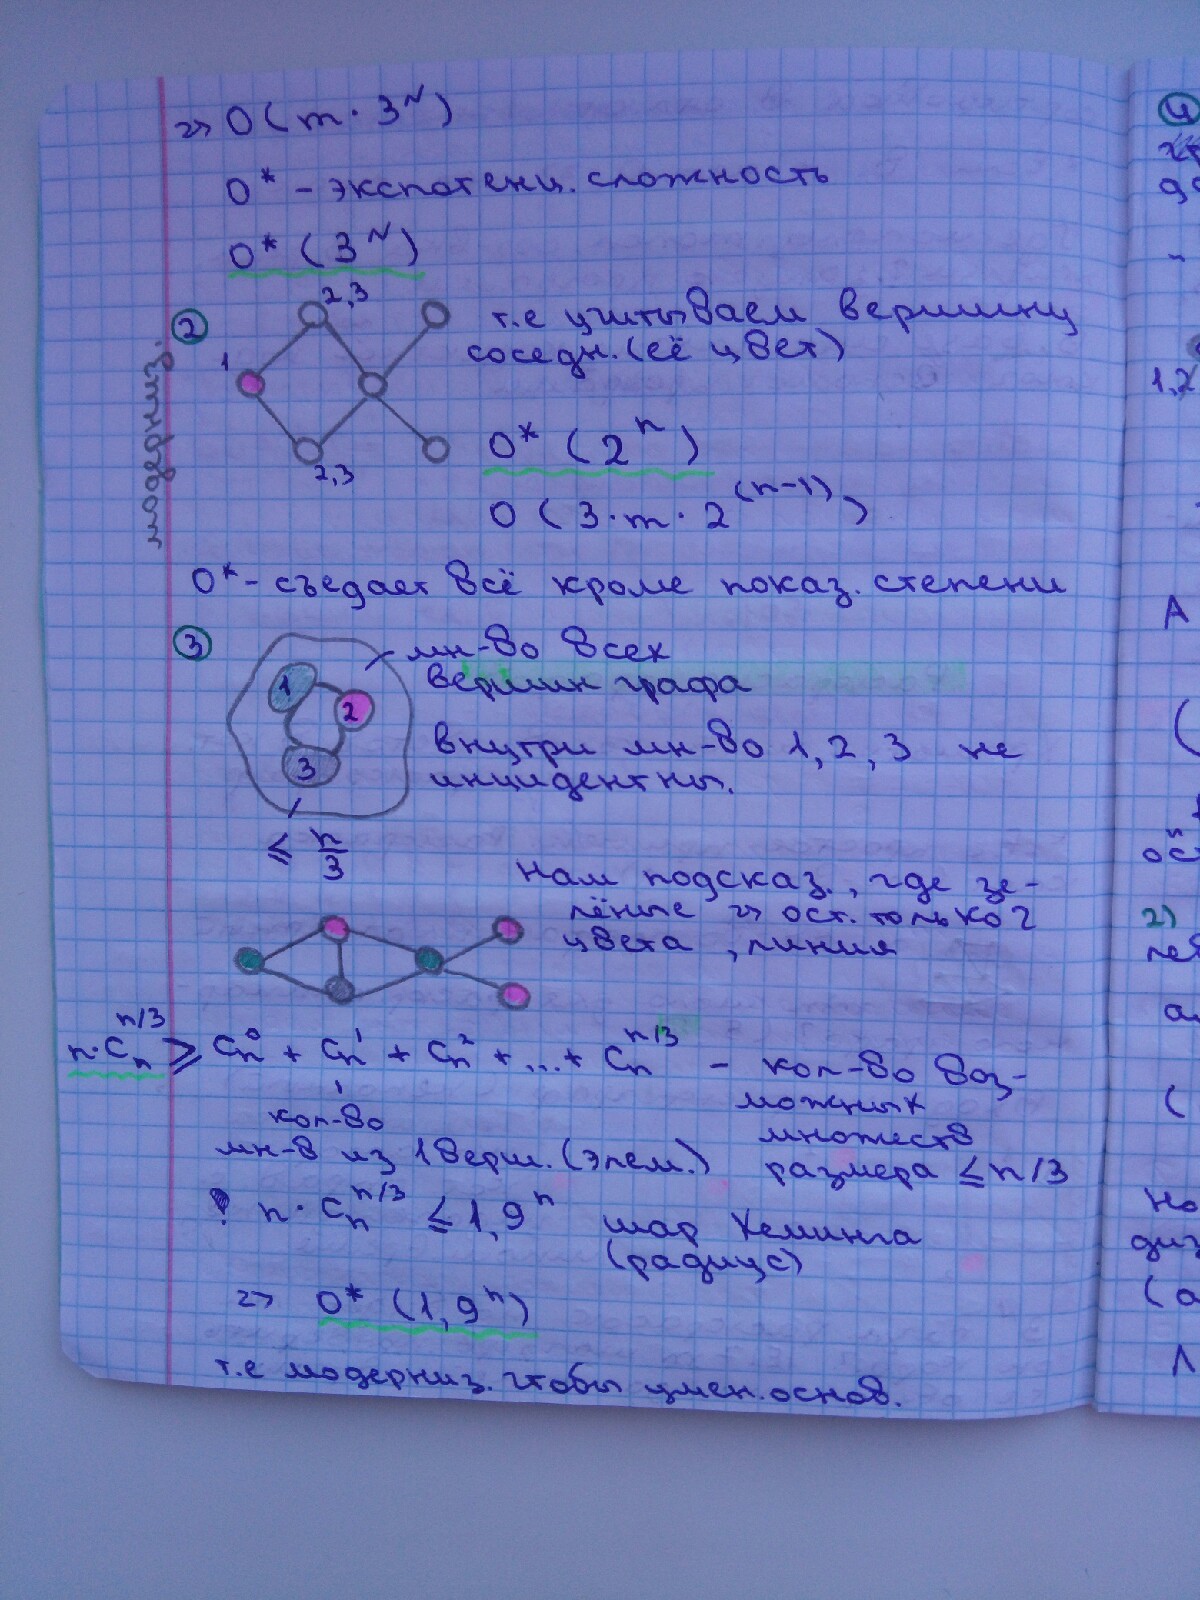 => O(m · 3^N)
O* – экспотенц. сложность
O* (3^N)
модерниз.
2
2,3
1
2,3
т.е учитываем вершину
соседн. (её цвет)
O* (2^n)
O (3·m·2^(n-1))
O* – съедает всё кроме показ. степени
3
1
2
3
мн-во всех
вершин графа
внутри мн-во 1, 2, 3 не
инцидентны.
≤ n/3
нам подсказ., где зе-
лёные => ост. только 2
цвета, линия
n·C_n^{n/3} ≥ C_n^0 + C_n^1 + C_n^2 + ... + C_n^{n/3} – кол-во воз-
можных
множеств
размера ≤ n/3
кол-во
мн-в из 1 верш. (элем.)
! n · C_n^{n/3} ≤ 1,9^n шар Хеминга
(радиус)
=> O* (1,9^n)
т.е модерниз. чтобы умен. основ.
4
1,2
А
ос
2)
а
(
но
диз
(а
Л